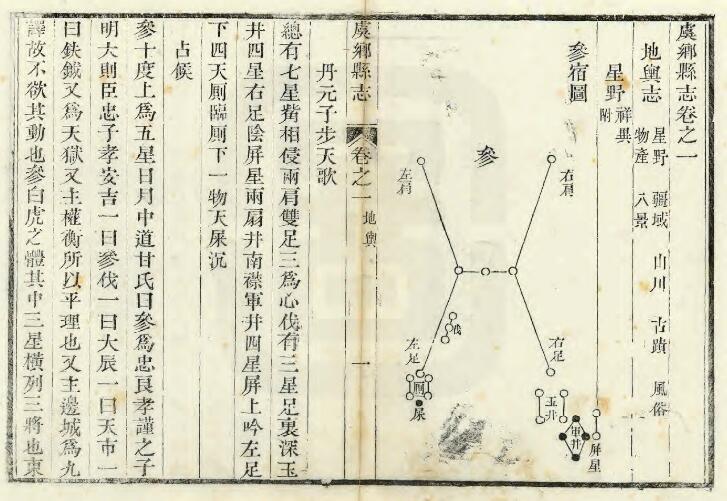 虞鄉縣志卷之一
地輿志 星野 疆域 山川 古蹟 風俗
物產 八景
星野 祥異附
參宿圖
參
右肩
左肩
伐
右足
左足
廁
屎
玉井
軍井
屏星
虞鄉縣志
卷之一 地輿
一
丹元子步天歌
總有七星觜相侵兩肩雙足三爲心伐有三星足裏深玉
井四星右足陰屏星兩扇井南襟軍井四星屏上吟左足
下四天廁臨廁下一物天屎沉
占候
參十度上爲五星日月中道甘氏曰參爲忠良孝謹之子
明大則臣忠子孝安吉一曰參伐一曰大辰一曰天市一
曰鈇鉞又爲天獄又主權衡所以平理也又主邊城爲九
譯故不欲其動也參白虎之體其中三星橫列三將也東